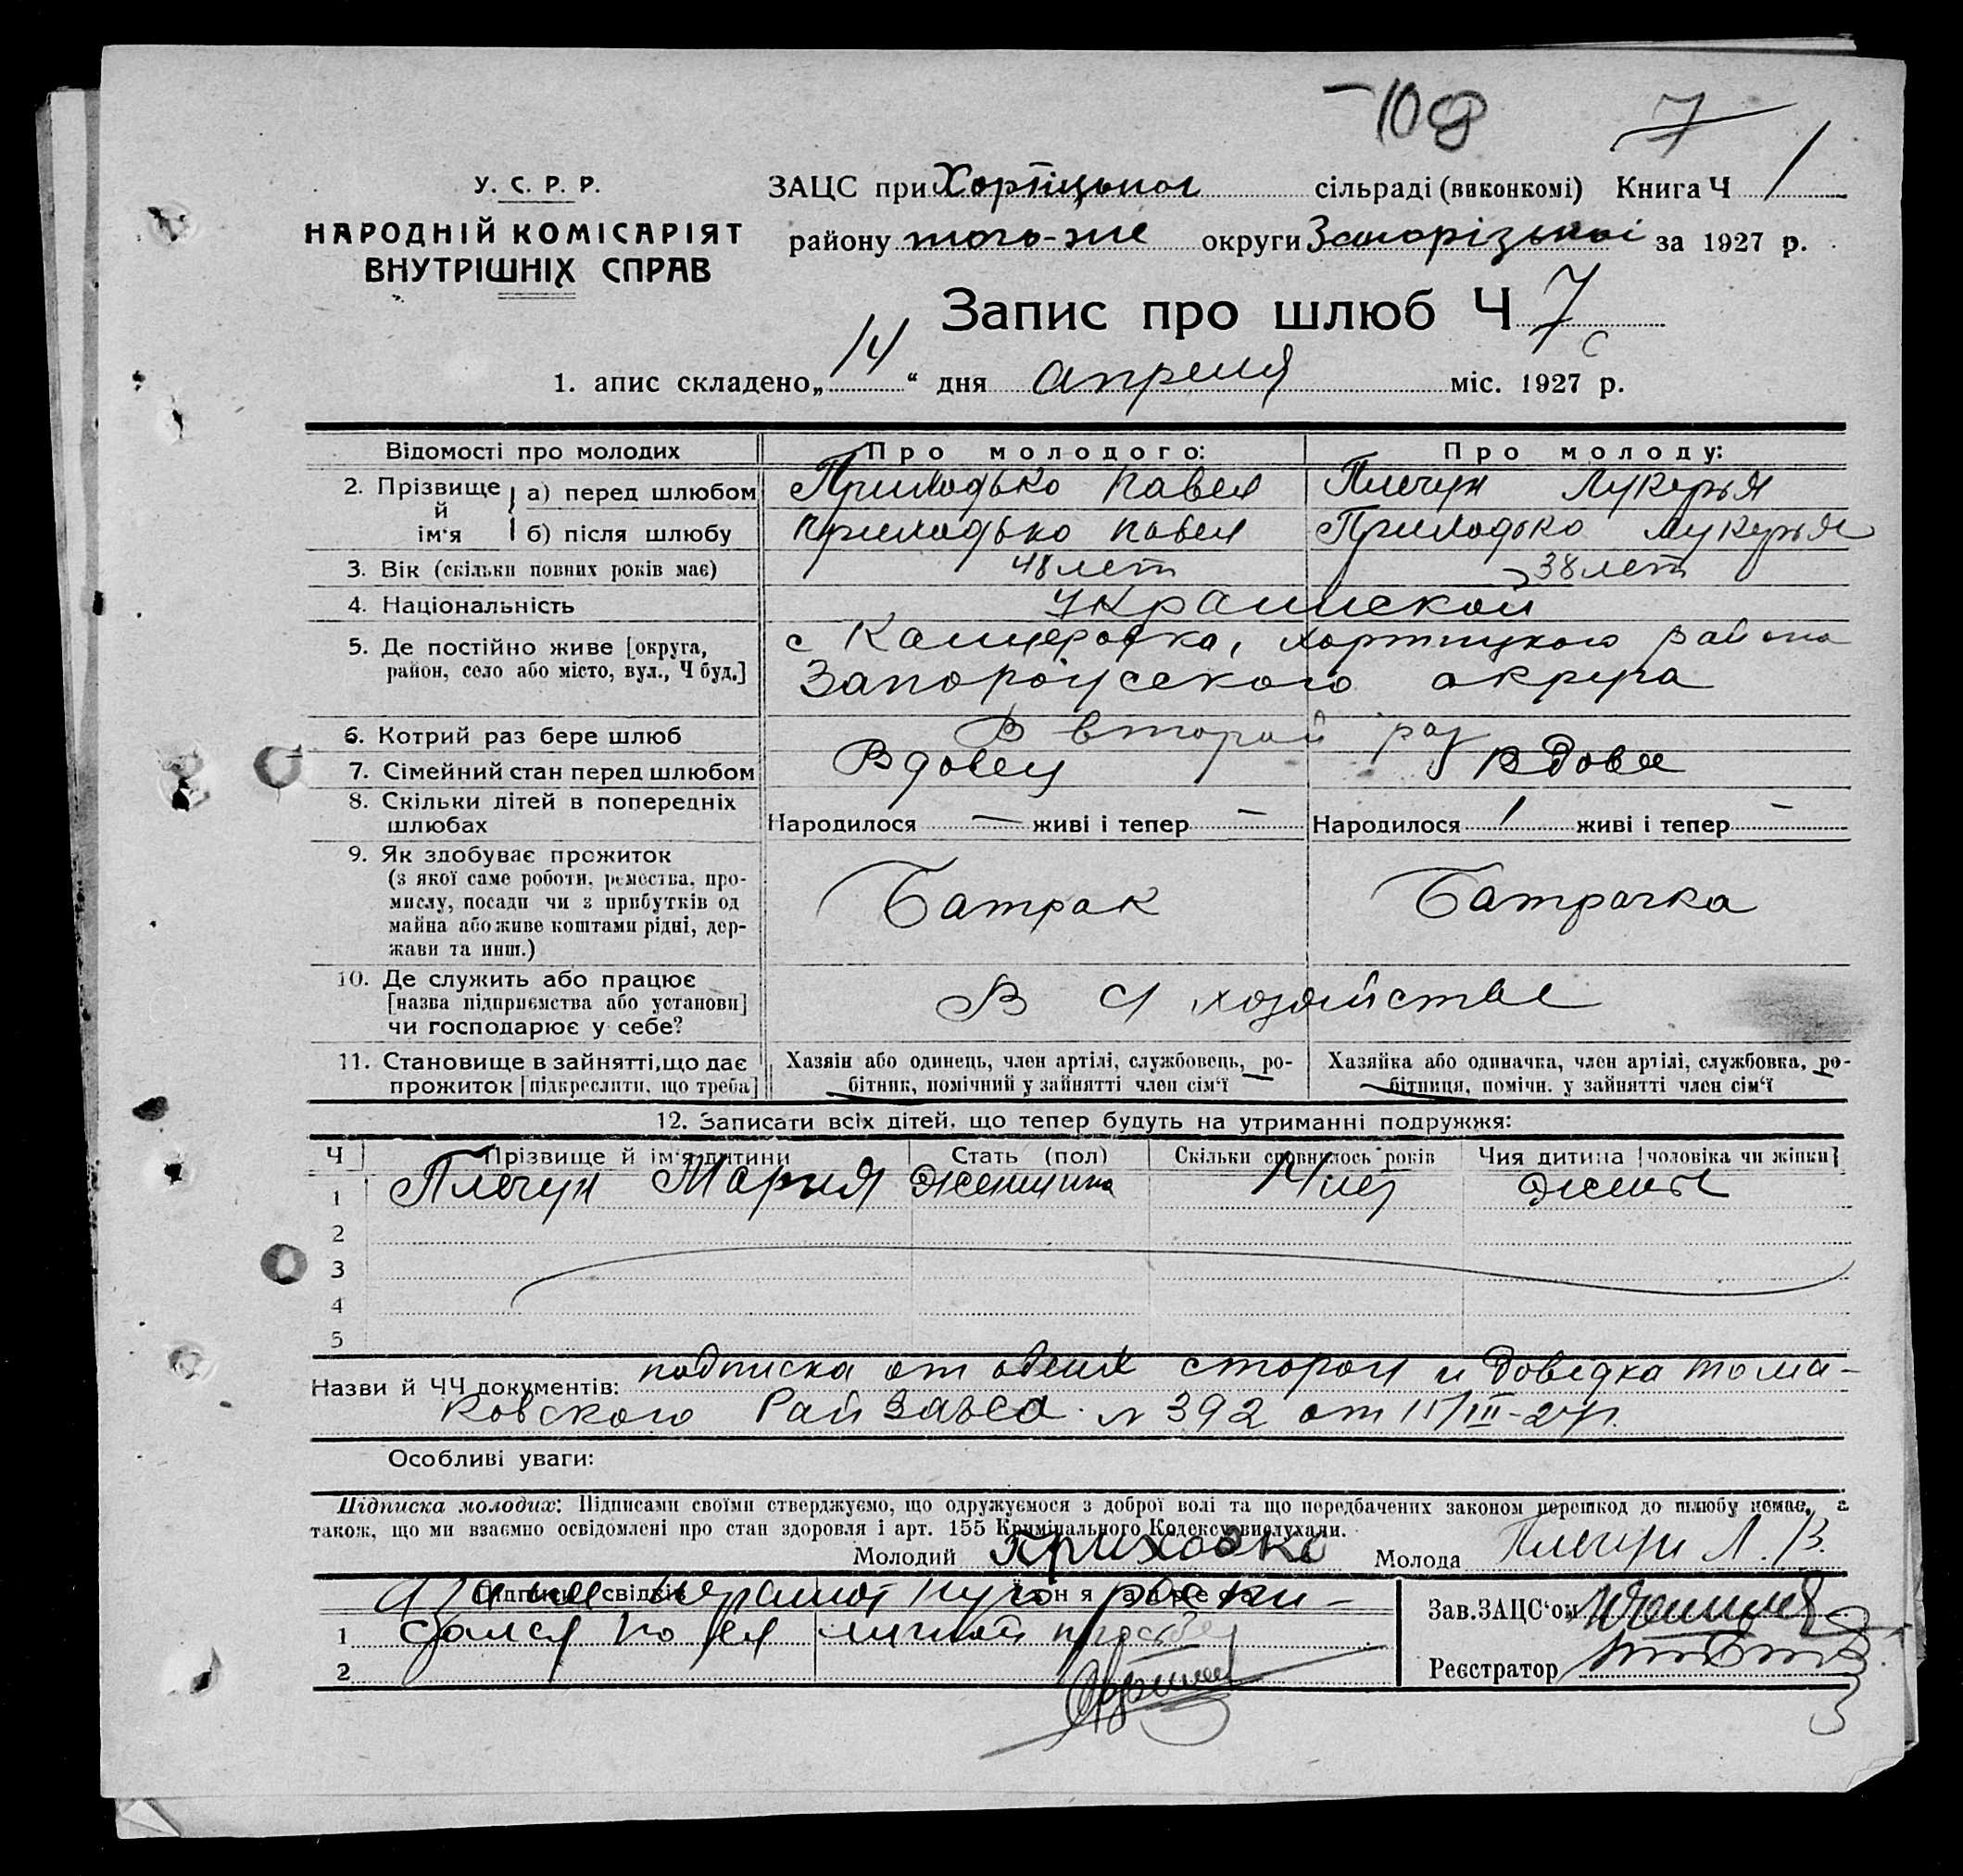 108 7
У. С. Р. Р.
НАРОДНІЙ КОМІСАРІЯТ
ВНУТРІШНІХ СПРАВ
ЗАЦС при Хортіцької сільраді (виконкомі) Книга Ч 1
району того-же округи Запорізької за 1927 р.
Запис про шлюб Ч 7
1. апис складено „14“ дня апреля міс. 1927 р.
Відомості про молодих Про молодого: Про молоду:
2. Прізвище й ім‘я а) перед шлюбом Приходько Павел Плечун Лукерья
б) після шлюбу Приходько Павел Приходько Лукерья
3. Вік (скільки повних років має) 48 лет 38 лет
4. Національність Украинской
5. Де постійно живе [округа, район, село або місто, вул., Ч буд.] с Канцеровка, Хортицкого района
Запорожского округа
6. Котрий раз бере шлюб В второй раз
7. Сімейний стан перед шлюбом Вдовец Вдова
8. Скільки дітей в попередніх шлюбах Народилося — живі і тепер — Народилося 1 живі і тепер —
9. Як здобуває прожиток
(з якої саме роботи, ремества, про-
мислу, посади чи з прибутків од
майна або живе коштами рідні, дер-
жави та инш.)
Батрак Батрачка
10. Де служить або працює
[назва підприємства або установи]
чи господарює у себе?
В с/хозяйстве
11. Становище в зайнятті, що дає
прожиток [підкреслити, що треба]
Хазяін або одинець, член артілі, службовець, ро-
бітник, помічний у зайнятті член сім‘ї
Хазяйка або одиначка, член артілі, службовка, ро-
бітниця, помічн. у зайнятті член сім‘ї
12. Записати всіх дітей, що тепер будуть на утриманні подружжя:
Ч Прізвище й ім‘я дитини Стать (пол) Скільки сповнилось років Чия дитина [чоловіка чи жінки]
1 Плечун Мария Женщина 14 лет Жены
2
3
4
5
Назви й ЧЧ документів: подписка от обеих сторон и Доведка Тома-
ковского Рай Загса № 392 от
Особливі уваги:
Підписка молодих: Підписами своїми стверджуємо, що одружуємося з доброї волі та що передбачених законом перешкод до шлюбу немає, а
також, що ми взаємно освідомлені про стан здоровля і арт. 155 Кримінального Кодексу вислухали.
Молодий Приходко Молода Плечун Л. В.
Підписи свідків
А за не грамотную распи-
1 сался по ея личной просьбе
2
Зав. ЗАЦС‘ом
Реєстратор